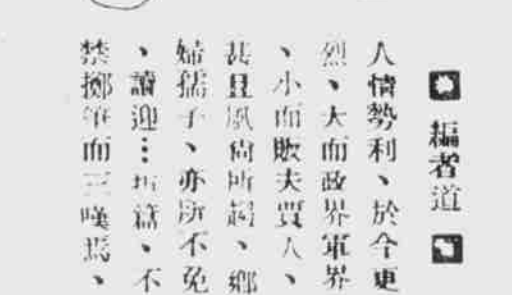 編者道
人情勢利、於今更
烈、大而政界軍界
、小而販夫賈人、
甚且風尚所趨、鄉
婦孺子、亦所不免
、讀迎…折篇、不
禁擲筆而三嘆焉、